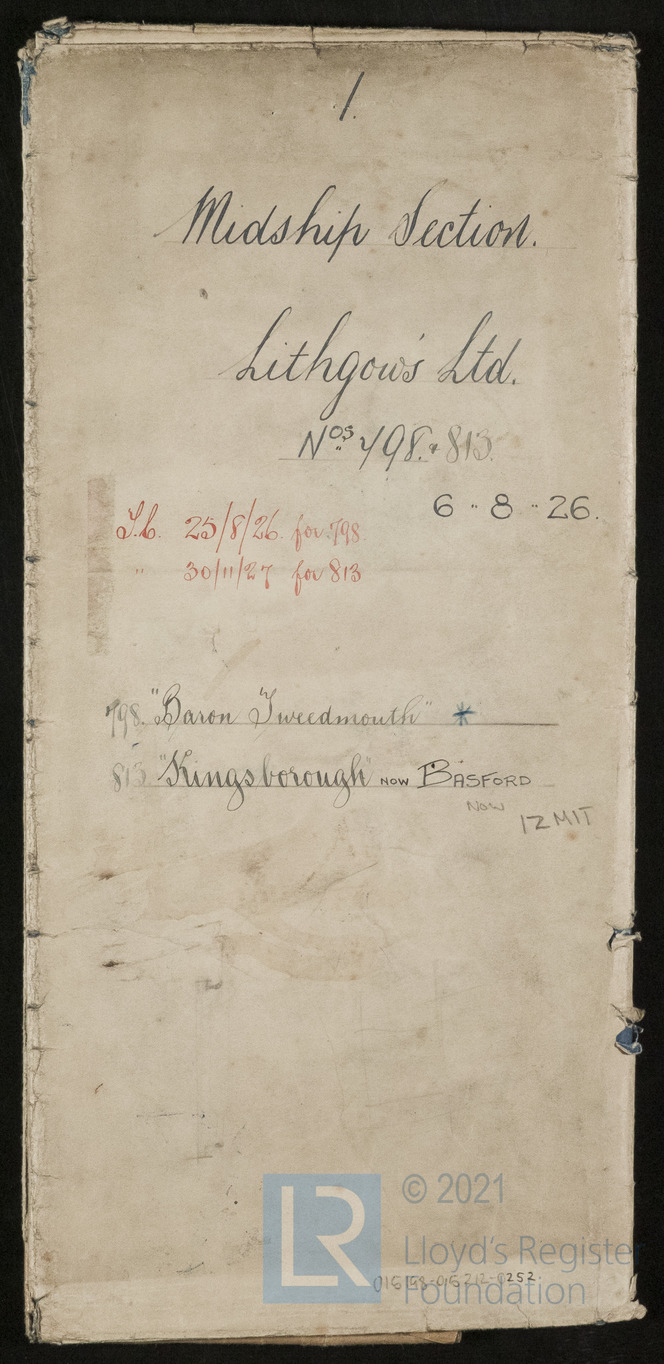 1.
Midship Section.
Lithgows Ltd.
Nos 798. & 813.
6 - 8 - 26.
25/8/26 for 798
" 30/11/27 for 813
798. "Baron Tweedmouth" *
813 "Kingsborough" NOW BASFORD
NOW
IZMIT
© 2021
LR
Lloyd's Register
Foundation